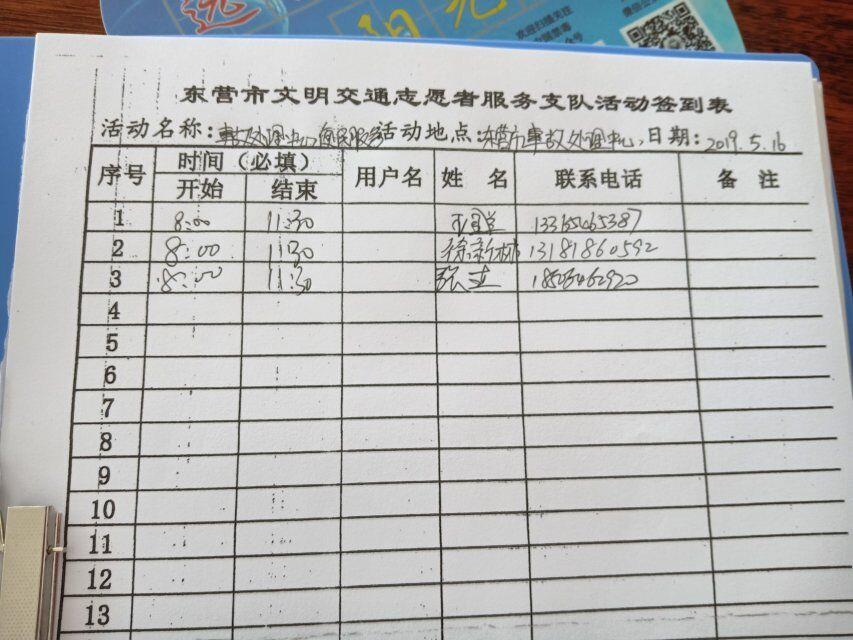 欢迎扫描关注
东营市文明交通志愿者服务支队活动签到表
活动名称:事故处理中心便民服务 活动地点:东营市事故处理中心 日期:2019.5.16
序号 时间(必填) 用户名 姓 名 联系电话 备 注
开始 结束
1 8:00 11:30
2 8:00 11:30 徐新林 13181860592
3 8:00 11:30
4
5
6
7
8
9
10
11
12
13